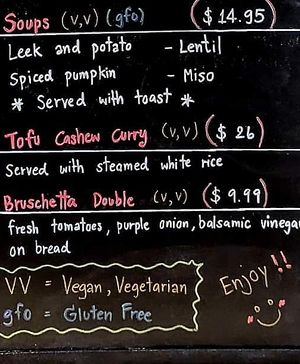 Soups (v,v) (gfo) ($14.95)
Leek and potato - Lentil
Spiced pumpkin - Miso
* Served with toast *
Tofu Cashew Curry (v,v) ($26)
Served with steamed white rice
Bruschetta Double (v,v) ($9.99)
fresh tomatoes, purple onion, balsamic vinega
on bread
VV = Vegan, Vegetarian
gfo = Gluten Free
Enjoy!!